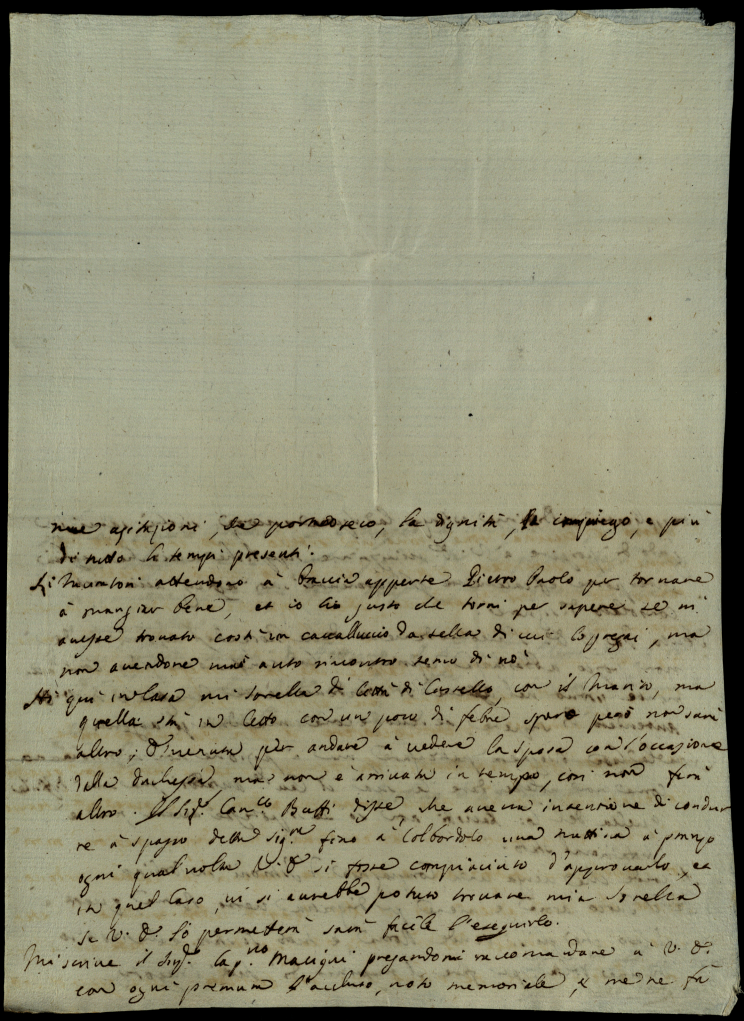 mie afflizioni, la dignità, la impiego, e più
di tutto li tempi presenti.
Li attendono à braccia apperte Pietro Paolo per tornare
à mangiar bene, et io hò gusto che torni per sapere se mi
avesse trovato costì un cavalluccio da sella di cui lo pregai, ma
non avendone mai auto riscontro temo di nò.
Hò qui in Casa mia Sorella di Città di Castello, con il Marito, ma
quella stà in letto con un poco di febre, spero però non sarà
altro; è venuta per andare à vedere la sposa con l'occasione
della duchessa, ma non è arrivata in tempo, così non farà
altro. Il Sigr. Canco Buffi disse che aveva intentione di condur
re à spasso dette Sigre fino à Colbordolo una mattina à pranzo
ogni qual volta V. S. si fosse compiaciuto d'approvarlo, et
in quel Caso, vi si averebbe potuto trovare mia Sorella
Se V. S. lo permetterà sarà facile l'eseguirlo.
Mi scrive il Sigr. Capno Macigni pregandomi raccomandare à V. S.
con ogni premura l'accluso, noto memoriale, e me ne fà